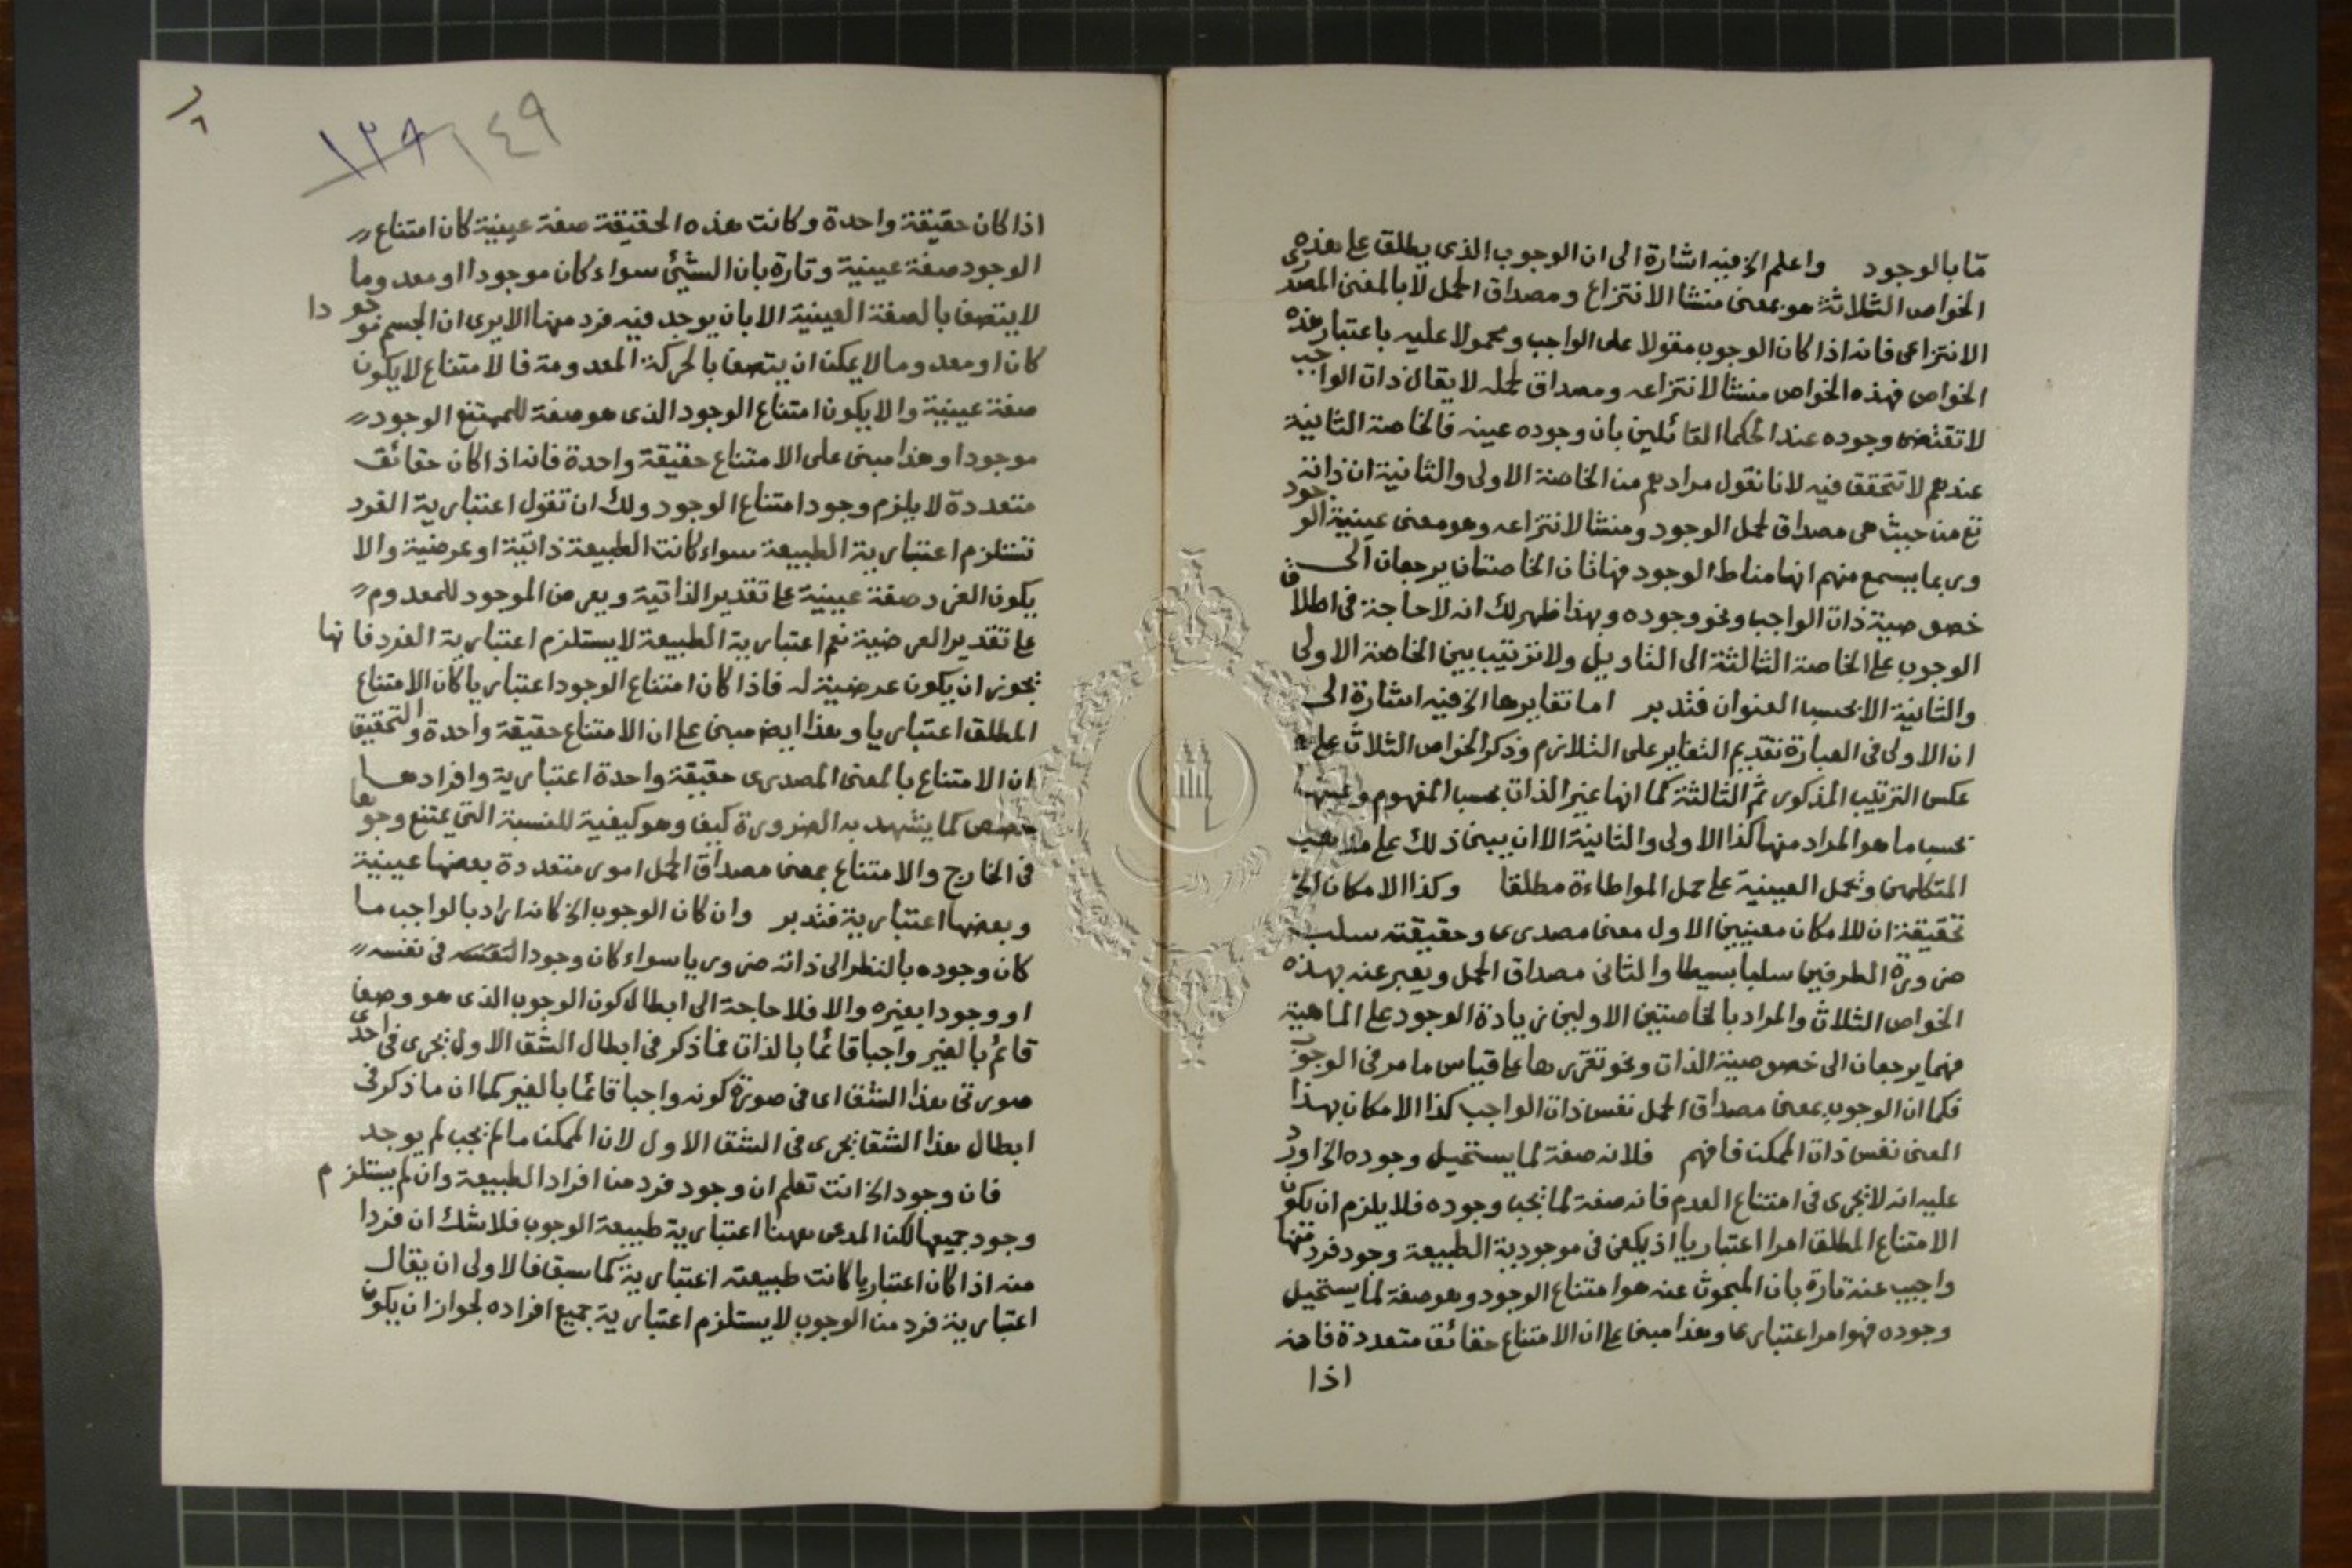 مّا بالوجود واعلم الخ فيه اشارة الى ان الوجوب الذى يطلق على هذه
الخواص الثلاثة هو بمعنى منشا الانتزاع ومصداق الحمل لا بالمعنى المصدرى
الانتزاعى فانه اذا كان الوجوب مقولا على الواجب ومحمولا عليه باعتبار هذه
الخواص فهذه الخواص منشا لانتزاعه ومصداق لحمله لا يقال ذات الواجب
لا تقتضى وجوده عند الحكما القائلين بان وجوده عينه فالخاصة الثانية
عندهم لا تتحقق فيه لانا نقول مرادهم من الخاصة الاولى والثانية ان ذاته
تع من حيث هى مصداق لحمل الوجود ومنشا لانتزاعه وهو معنى عينية الوجود
وربما يسمع منهم انها مناط الوجود فهاتان الخاصتان يرجعان الى
خصوصية ذات الواجب ونحو وجوده وبهذا ظهر لك انه لا حاجة فى اطلاق
الوجوب على الخاصة الثالثة الى التاويل ولا ترتيب بين الخاصة الاولى
والثانية الا بحسب العنوان فتدبر اما تغايرها الخ فيه اشارة الى
ان الاولى فى العبارة تقديم التغاير على التلازم وذكر الخواص الثلاث على
عكس الترتيب المذكور ثم الثالثة كما انها غير الذات بحسب المفهوم وعينها
بحسب ما هو المراد منها كذا الاولى والثانية الا ان يبنى ذلك على مذهب
المتكلمين وتحمل العينية على حمل المواطاءة مطلقا وكذا الامكان الخ
تحقيقة ان للامكان معنيين الاول معنى مصدرى وحقيقته سلب
ضرورة الطرفين سلبا بسيطا والثانى مصداق الحمل ويعبر عنه بهذه
الخواص الثلاث والمراد بالخاصتين الاوليين زيادة الوجود على الماهية
فهما يرجعان الى خصوصية الذات ونحو تقررها على قياس ما مر فى الوجوب
فكما ان الوجوب بمعنى مصداق الحمل نفس ذات الواجب كذا الامكان بهذا
المعنى نفس ذات الممكن فافهم فلانه صفة لما يستحيل وجوده الخ اورد
عليه انه لا يجرى فى امتناع العدم فانه صفة لما يجب وجوده فلا يلزم ان يكون
الامتناع المطلق امرا اعتباريا اذ يكفى فى موجودية الطبيعة وجود فرد منها
واجيب عنه تارة بان المبحوث عنه هو امتناع الوجود وهو صفة لما يستحيل
وجوده فهو امر اعتبارى وهذا مبنى على ان الامتناع حقائق متعددة فانه
اذا
١٣٨ ١٤٩
اذا كان حقيقة واحدة وكانت هذه الحقيقة صفة عينية كان امتناع
الوجود صفة عينية وتارة بان الشيئ سواء كان موجودا او معدوما
لا يتصف بالصفة العينية الا بان يوجد فيه فرد منها الا يرى ان الجسم موجودا
كان او معدوما لا يمكن ان يتصف بالحركة المعدومة فالامتناع لا يكون
صفة عينية والا يكون امتناع الوجود الذى هو صفة للممتنع الوجود
موجودا وهذا مبنى على الامتناع حقيقة واحدة فانه اذا كان حقائق
متعددة لا يلزم وجود امتناع الوجود ولك ان تقول اعتبارية الفرد
تستلزم اعتبارية الطبيعة سواء كانت الطبيعة ذاتية او عرضية والا
يكون الفرد صفة عينية على تقدير الذاتية ويعرض الموجود للمعدوم
على تقدير العرضية نعم اعتبارية الطبيعة لا يستلزم اعتبارية الفرد فانها
يجوز ان يكون عرضية له فاذا كان امتناع الوجود اعتباريا كان الامتناع
المطلق اعتباريا وهذا ايض مبنى على ان الامتناع حقيقة واحدة والتحقيق
ان الامتناع بالمعنى المصدرى حقيقة واحدة اعتبارية وافرادها
حصص كما يشهد به الضرورة كيف وهو كيفية للنسبة التى يمتنع وجودها
فى الخارج والامتناع بمعنى مصداق الحمل امور متعددة بعضها عينية
وبعضها اعتبارية فتدبر وان كان الوجوب الخ كانه اراد بالواجب ما
كان وجوده بالنظر الى ذاته ضروريا سواء كان وجودا لنفسه فى نفسه
او وجودا بغيره والا فلا حاجة الى ابطال كون الوجوب الذى هو وصف
قائم بالغير واجبا قائما بالذات فما ذكر فى ابطال الشق الاول يجرى فى احدى
صورتى هذا الشق اى فى صورة كونه واجبا قائما بالغير كما ان ما ذكر فى
ابطال هذا الشق يجرى فى الشق الاول لان الممكن ما لم يجب لم يوجد
فان وجود الخ انت تعلم ان وجود فرد من افراد الطبيعة وان لم يستلزم
وجود جميعها لكن المدعى ههنا اعتبارية طبيعة الوجوب فلا شك ان فردا
منه اذا كان اعتباريا كانت طبيعته اعتبارية كما سبق فالاولى ان يقال
اعتبارية فرد من الوجوب لا يستلزم اعتبارية جميع افراده لجواز ان يكون